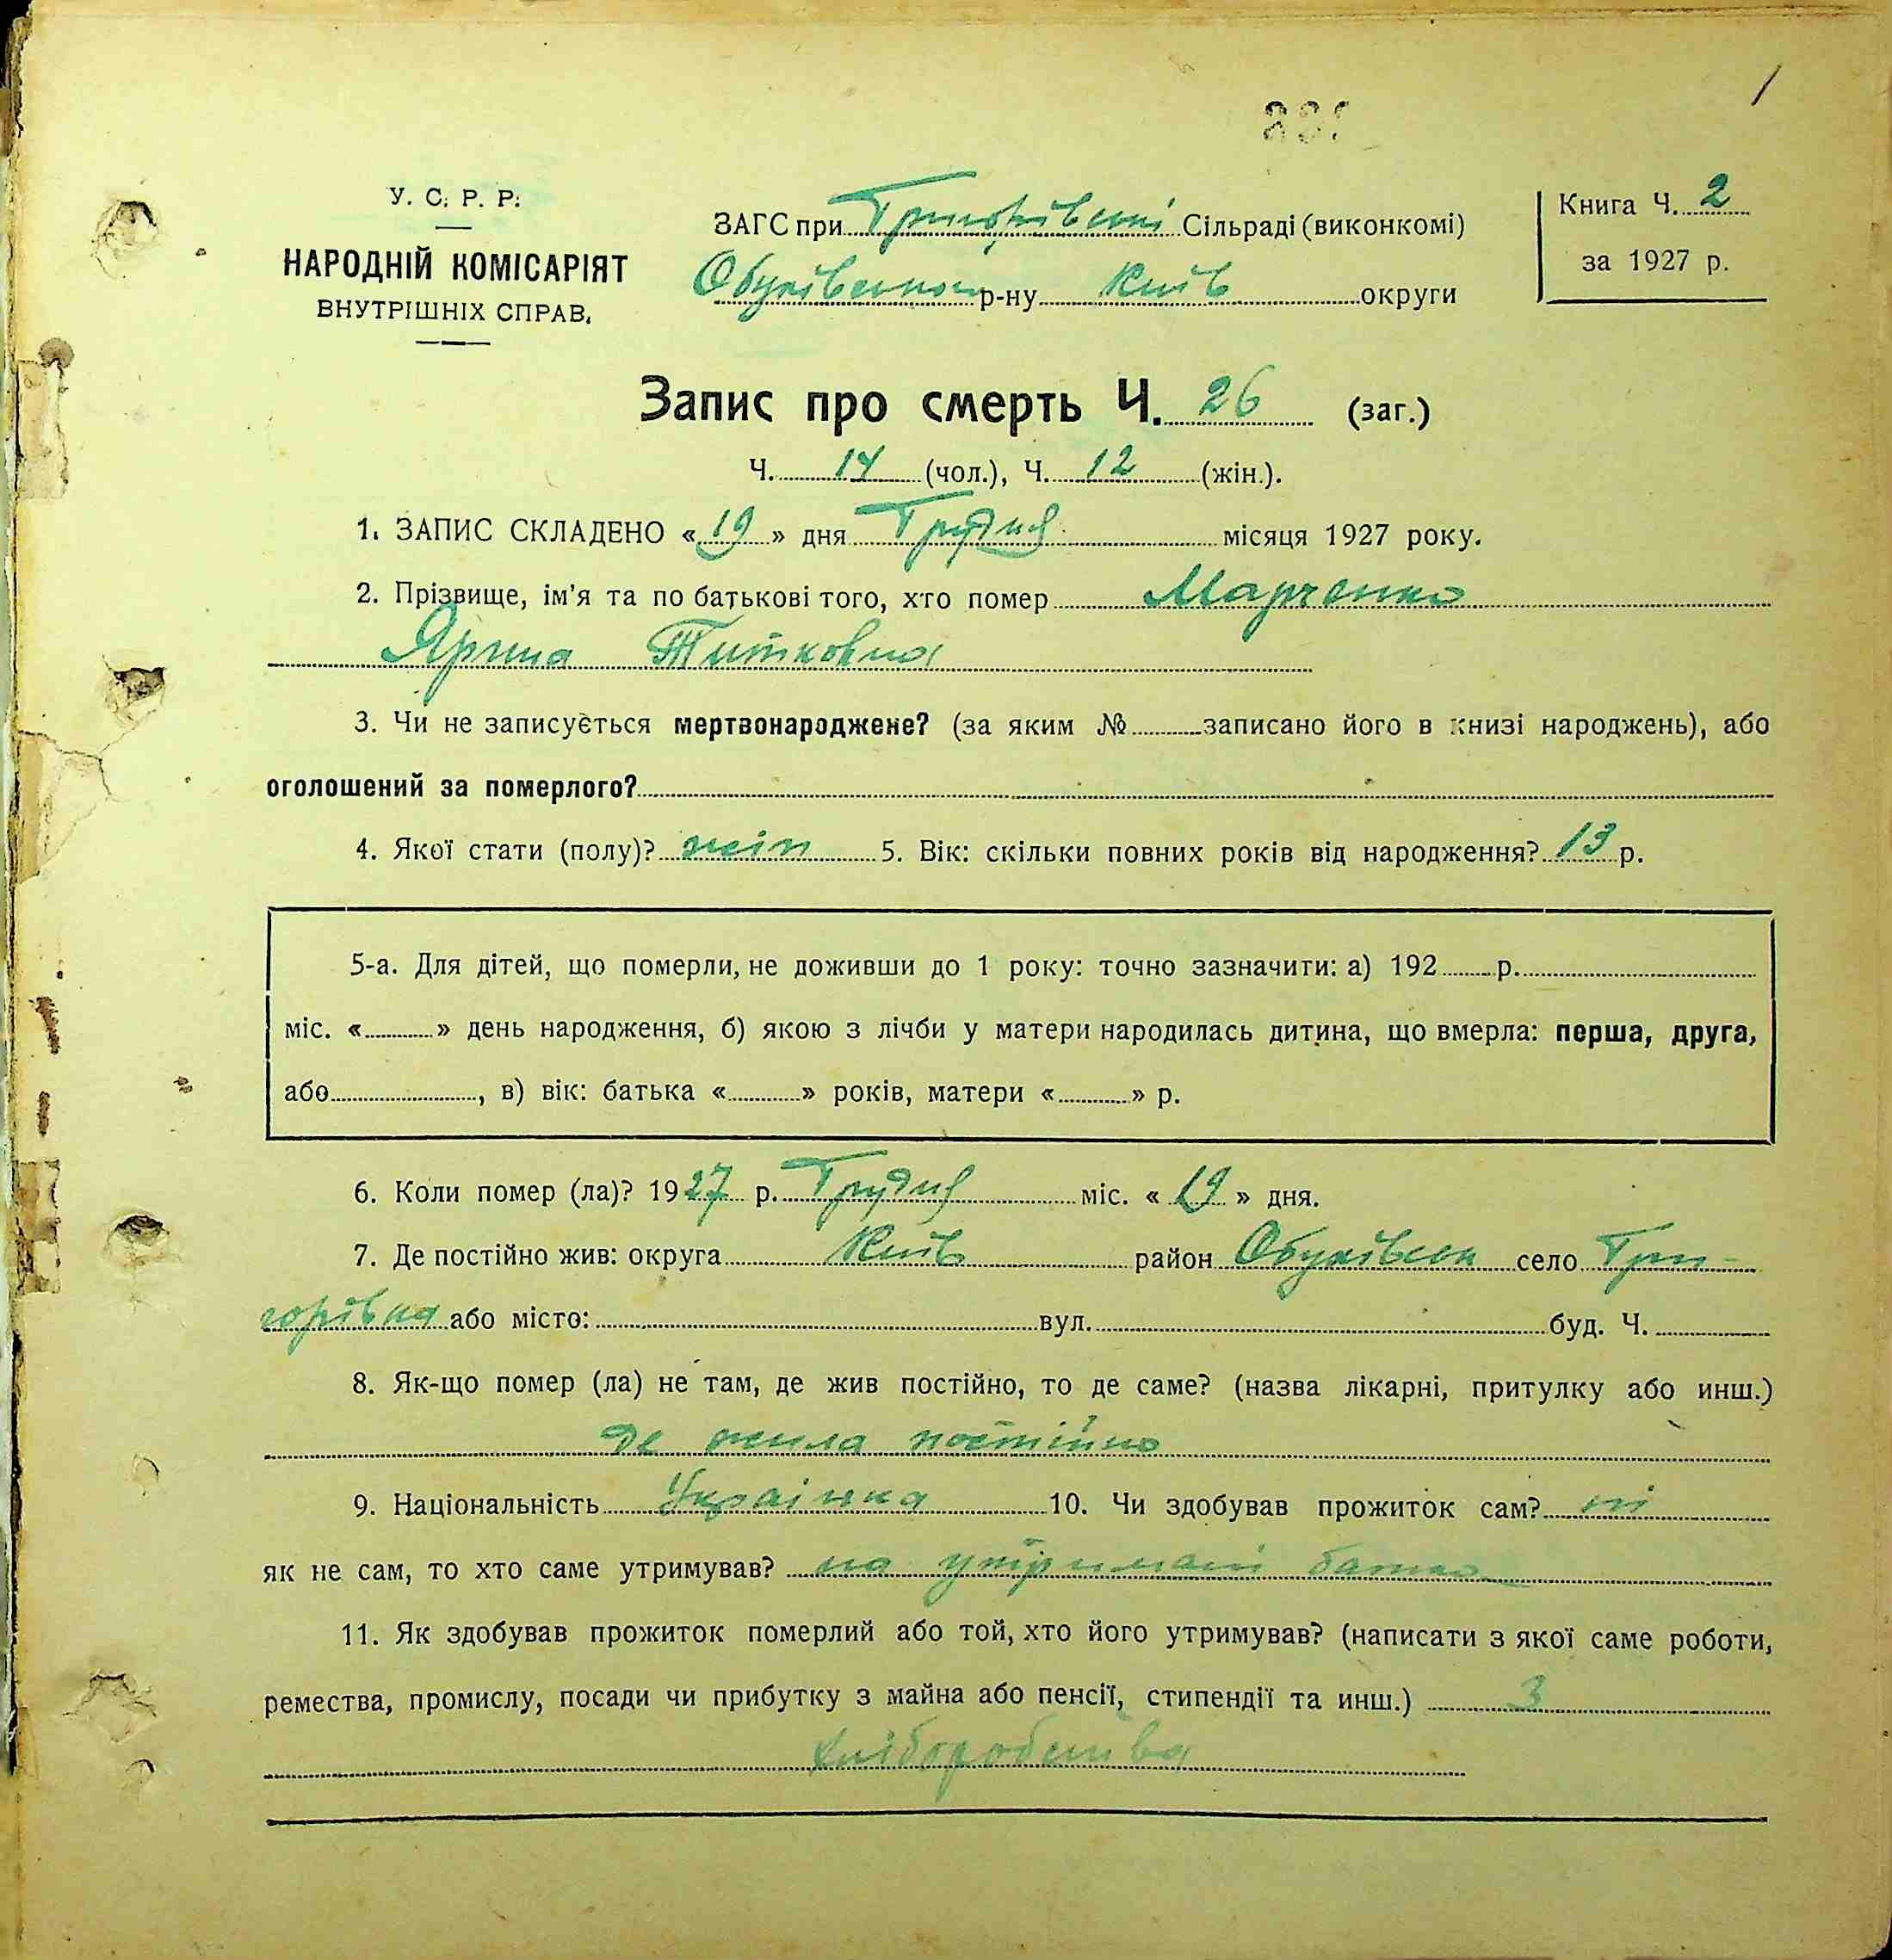 1
У. С. Р. Р.
НАРОДНІЙ КОМІСАРІЯТ
ВНУТРІШНІХ СПРАВ.
ЗАГС при Григорівські Сільраді (виконкомі)
Обухівськом р-ну Київ округи
Книга Ч. 2
за 1927 р.
Запис про смерть Ч. 26 (заг.)
Ч. 14 (чол.), Ч. 12 (жін.).
1. ЗАПИС СКЛАДЕНО « 19 » дня Грудня місяця 1927 року.
2. Прізвище, ім'я та по батькові того, хто помер Марченко
Ярина Титковна
3. Чи не записується мертвонароджене? (за яким № записано його в книзі народжень), або
оголошений за померлого?
4. Якої стати (полу)? жін 5. Вік: скільки повних років від народження? 13 р.
5-а. Для дітей, що померли, не доживши до 1 року: точно зазначити: а) 192 р.
міс. « » день народження, б) якою з лічби у матери народилась дитина, що вмерла: перша, друга,
або , в) вік: батька « » років, матери « » р.
6. Коли помер (ла)? 1927 р. Грудня міс. « 19 » дня.
7. Де постійно жив: округа Київ район Обухівськ село Гри-
горівка або місто: вул. буд. Ч.
8. Як-що помер (ла) не там, де жив постійно, то де саме? (назва лікарні, притулку або инш.)
де жила постійно
9. Національність Українка 10. Чи здобував прожиток сам? ні
як не сам, то хто саме утримував? на утримані батька
11. Як здобував прожиток померлий або той, хто його утримував? (написати з якої саме роботи,
ремества, промислу, посади чи прибутку з майна або пенсії, стипендії та инш.) З
хліборобства